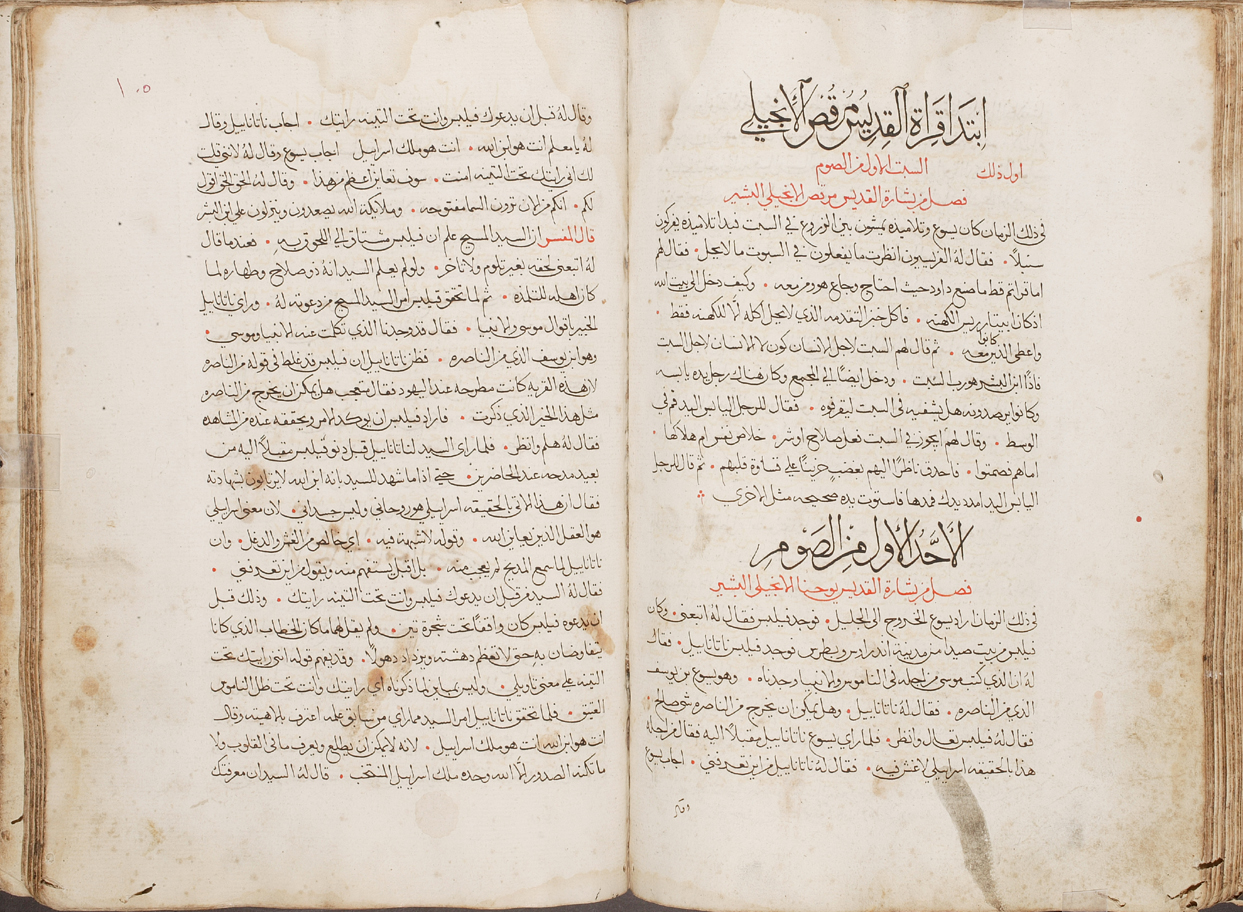 ابتدا قراة القديس مرقص الانجيلي
اول ذلك السبت الاول من الصوم
فصل من بشارة القديس مرقص الانجيلي البشير
في ذلك الزمان كان يسوع وتلاميذه يمشون بين الزروع في السبت فبدا تلاميذه يفركون
سنبلًا • فقال له الفريسيون انظر ما يفعلون في السبوت ما لا يحل • فقال لهم
اما قراتم قط ما صنع داود حيث احتاج وجاع هو ومن معه • وكيف دخل الى بيت الله
اذ كان ابيتار ريس الكهنه • فاكل خبز التقدمه الذي لا يحل اكله الا للكهنه فقط •
واعطى الذين كانوا معه • ثم قال لهم السبت لاجل الانسان كون لا الانسان لاجل السبت
فاذًا ابن البشر هو رب السبت • ودخل ايضًا الى المجمع وكان هناك رجل يده يابسه
وكانوا يرصدونه هل يشفيه في السبت ليقرفوه • فقال للرجل اليابس اليد قم في
الوسط • وقال لهم ايجوز في السبت فعل صلاح او شر • خلاص نفس ام هلاكها •
اما هم فصمتوا • فاحدق ناظرًا اليهم بغضب حزينًا على قساوة قلبهم • ثم قال للرجل
اليابس اليد امدد يدك فمدها فاستوت يده صحيحه مثل الاخرى
الاحد الاول من الصوم
فصل من بشارة القديس يوحنا الانجيلي البشير
في ذلك الزمان اراد يسوع الخروج الى الجليل • فوجد فيلبس فقال له اتبعني • وكان
فيلبس من بيت صيدا من مدينة اندراوس وبطرس فوجد فيلبس ناتانايل • فقال
له ان الذي كتب موسى من اجله في الناموس والانبيا وجدناه • وهو يسوع بن يوسف
الذي من الناصره • فقال له ناتانايل • وهل يمكن ان يخرج من الناصره شي صالح •
فقال له فيلبس تعال وانظر • فلما راى يسوع ناتانايل مقبلًا اليه فقال من اجله
هذا بالحقيقه اسرايلي لا غش فيه • فقال له ناتانايل من اين تعرفني • اجاب يسوع
وقال
١٠٥
وقال له قبل ان يدعوك فيلبس وانت تحت التينه رايتك • اجاب ناتانايل وقال
له يا معلم انت هو ابن الله • انت هو ملك اسرايل اجاب يسوع وقال له لاني قلت
لك اني رايتك تحت التينه امنت • سوف تعاين اعظم من هذا • وقال له الحق الحق اقول
لكم • انكم من الان ترون السما مفتوحه • وملايكة الله يصعدون وينزلون على ابن البشر
قال المفسر ان السيد المسيح علم ان فيلبس مشتاق الى اللحوق به • فعندما قال
له اتبعني لحقه بغير تلوم ولا تاخر • ولو لم يعلم السيد انه ذو صلاح وطهاره لما
كان اهله للتلمذه • ثم لما تحقق فيلبس امر السيد المسيح من دعوته له • وراى ناتانايل
الخبير باقوال موسى والانبيا • فقال قد وجدنا الذي تكلمت عنه الانبيا وموسى •
وهو ابن يوسف الذي من الناصره • فظن ناتانايل ان فيلبس قد غلط في قوله من الناصره
لان هذه القريه كانت مطرحه عند اليهود فقال متعجب هل يمكن ان يخرج من الناصره
مثل هذا الخير الذي ذكرت • فاراد فيلبس ان يوكد الامر ويحققه عنده من المشاهده
فقال له هلم وانظر • فلما راى السيد لناتانايل قبل دنو فيلبس مقبلًا اليه من
بعيد مدحه عند الحاضرين • حتى اذا ما شهد للسيد بانه ابن الله لا يرتابون بشهادته
فقال ان هذا الاتي بالحقيقه اسرايلي هو روحاني وليس جسداني • لان معنى اسرايلي
هو العقل الذي يعاين الله • وقوله لا شبهة فيه • اي خالص من الغش والدغل • وان
ناتانايل لما سمع المديح لم يعجب منه • بل اقبل يستفهم منه ويقول من اين تعرفني •
فقال له السيد من قبل ان يدعوك فيلبس وانت تحت التينه رايتك • وذلك قبل
ان يدعوه فيلبس كان واقفًا تحت شجرة تين • ولم يقل لهما ما كان الخطاب الذي كانا
يتفاوضان به حتى لا تعظم دهشته ويزداد ذهولًا • وقد يفهم قوله انني رايتك تحت
التينه على معنى تاويلي • وليس بما ين لما ذكرناه اي رايتك وانت تحت ظل الناموس
العتيق • فلما تحقق ناتانايل امر السيد مما راى من سابق علمه اعترف بالاهيته وقال
انت هو ابن الله انت هو ملك اسرايل • لانه لا يمكن ان يطلع ويعرف ما في القلوب ولا
ما تكنه الصدور الا الله وحده ملك اسرايل المنتخب • قال له السيد ان معرفتك